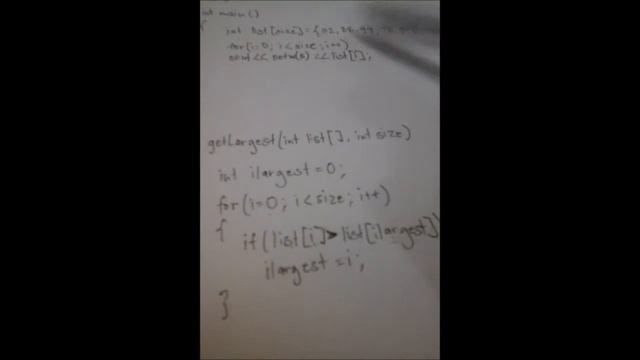 int main()
{
int list[size] = {02,
for(i=0; i<size; i++)
cout << setw(5) << list[i];
getLargest(int list[], int size)
int ilargest=0;
for(i=0; i<size; i++)
{
if(list[i]>list[ilargest])
ilargest=i;
}